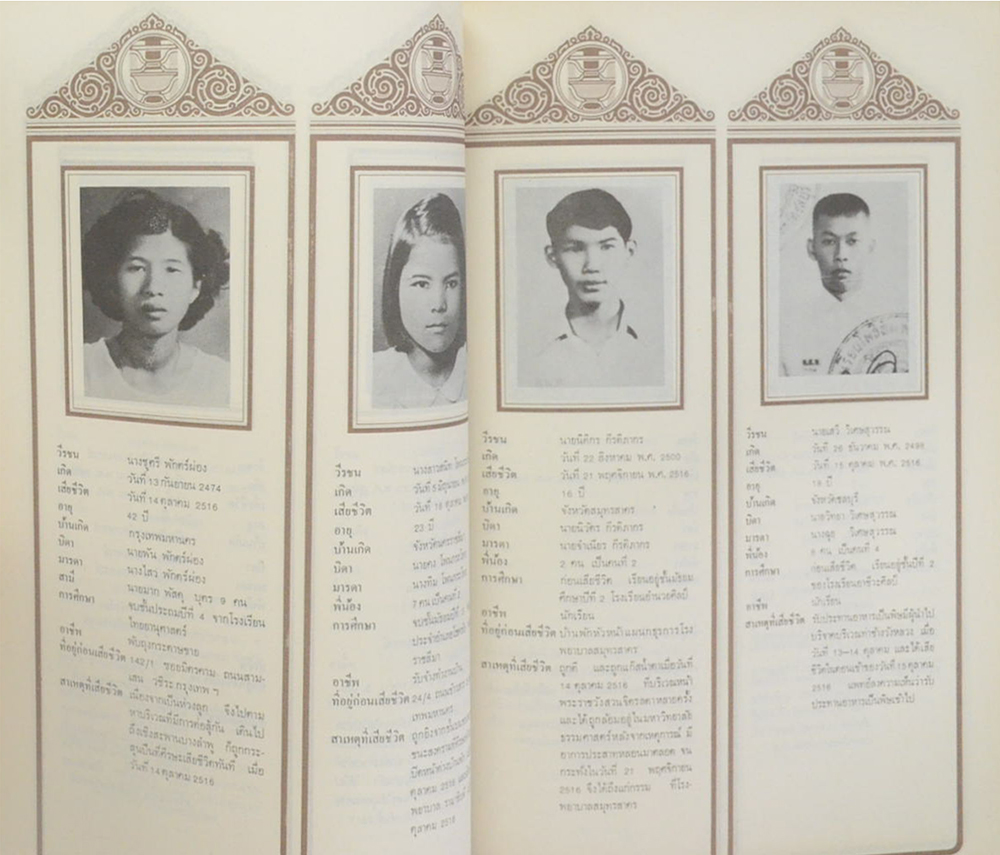 วีรชน นางชุศรี พักตร์ผ่อง
เกิด วันที่ 13 กันยายน 2474
เสียชีวิต วันที่ 14 ตุลาคม 2516
อายุ 42 ปี
บ้านเกิด กรุงเทพมหานคร
บิดา นายพัน พักตร์ผ่อง
มารดา นางไสว พักตร์ผ่อง
สามี นายมาก พัสดุ บุตร 9 คน
การศึกษา จบชั้นประถมปีที่ 4 จากโรงเรียน
ไทยอนุศาสตร์
อาชีพ พับถุงกระดาษขาย
ที่อยู่ก่อนเสียชีวิต 142/1 ซอยมิตรคาม ถนนสาม-
เสน วชิระ กรุงเทพ ฯ
สาเหตุที่เสียชีวิต เนื่องจากเป็นห่วงลูก จึงไปตาม
หาบริเวณที่มีการต่อสู้กัน เดินไป
ถึงเชิงสะพานบางลำพู ก็ถูกกระ-
สุนปืนที่ศีรษะเสียชีวิตทันที เมื่อ
วันที่ 14 ตุลาคม 2516
วีรชน
เกิด วันที่ 5 มิถุนายน
เสียชีวิต วันที่ 16 ตุลาคม
อายุ 23 ปี
บ้านเกิด จังหวัดนครราชสีมา
บิดา นายคง
มารดา นางทิม
พี่น้อง 7 คน เป็นคนที่
การศึกษา จบชั้นมัธยมปีที่
ราชสีมา
อาชีพ
ที่อยู่ก่อนเสียชีวิต 24/4 ถนน
เทพมหานคร
สาเหตุที่เสียชีวิต ถูกยิง
ตุลาคม 2516
พยาบาล
ตุลาคม 2516
วีรชน นายนิติกร กีรติภากร
เกิด วันที่ 22 สิงหาคม พ.ศ. 2500
เสียชีวิต วันที่ 21 พฤศจิกายน พ.ศ. 2516
อายุ 16 ปี
บ้านเกิด จังหวัดสมุทรสาคร
บิดา นายนิวัตร กีรติภากร
มารดา นางจำเนียร กีรติภากร
พี่น้อง 2 คน เป็นคนที่ 2
การศึกษา ก่อนเสียชีวิต เรียนอยู่ชั้นมัธยม
ศึกษาปีที่ 2 โรงเรียนอำนวยศิลป์
อาชีพ นักเรียน
ที่อยู่ก่อนเสียชีวิต บ้านพักหัวหน้าแผนกธุรการโรง
พยาบาลสมุทรสาคร
สาเหตุที่เสียชีวิต ถูกตี และถูกแก๊สน้ำตาเมื่อวันที่
14 ตุลาคม 2516 ที่บริเวณหน้า
พระราชวังสวนจิตรลดาหลายครั้ง
และได้ถูกล้อมอยู่ในมหาวิทยาลัย
ธรรมศาสตร์หลังจากเหตุการณ์ มี
อาการประสาทหลอนมาตลอด จน
กระทั่งในวันที่ 21 พฤศจิกายน
2516 จึงได้ถึงแก่กรรม ที่โรง-
พยาบาลสมุทรสาคร
วีรชน นายเสวี วิเศษสุวรรณ
เกิด วันที่ 26 ธันวาคม พ.ศ. 2498
เสียชีวิต วันที่ 15 ตุลาคม พ.ศ. 2516
อายุ 18 ปี
บ้านเกิด จังหวัดชลบุรี
บิดา นายวิทยา วิเศษสุวรรณ
มารดา วิเศษสุวรรณ
พี่น้อง คน เป็นคนที่ 4
การศึกษา ก่อนเสียชีวิต เรียนอยู่ชั้นปีที่ 2
ของโรงเรียนอาชีวะศิลป์
อาชีพ นักเรียน
สาเหตุที่เสียชีวิต รับประทานอาหารเป็นพิษมีผู้นำไป
บริจาคบริเวณท่าช้างวังหลวง เมื่อ
วันที่ 13-14 ตุลาคม และได้เสีย
ชีวิตในตอนเช้าของวันที่ 15 ตุลาคม
2516 แพทย์ลงความเห็นว่ารับ
ประทานอาหารเป็นพิษเข้าไป